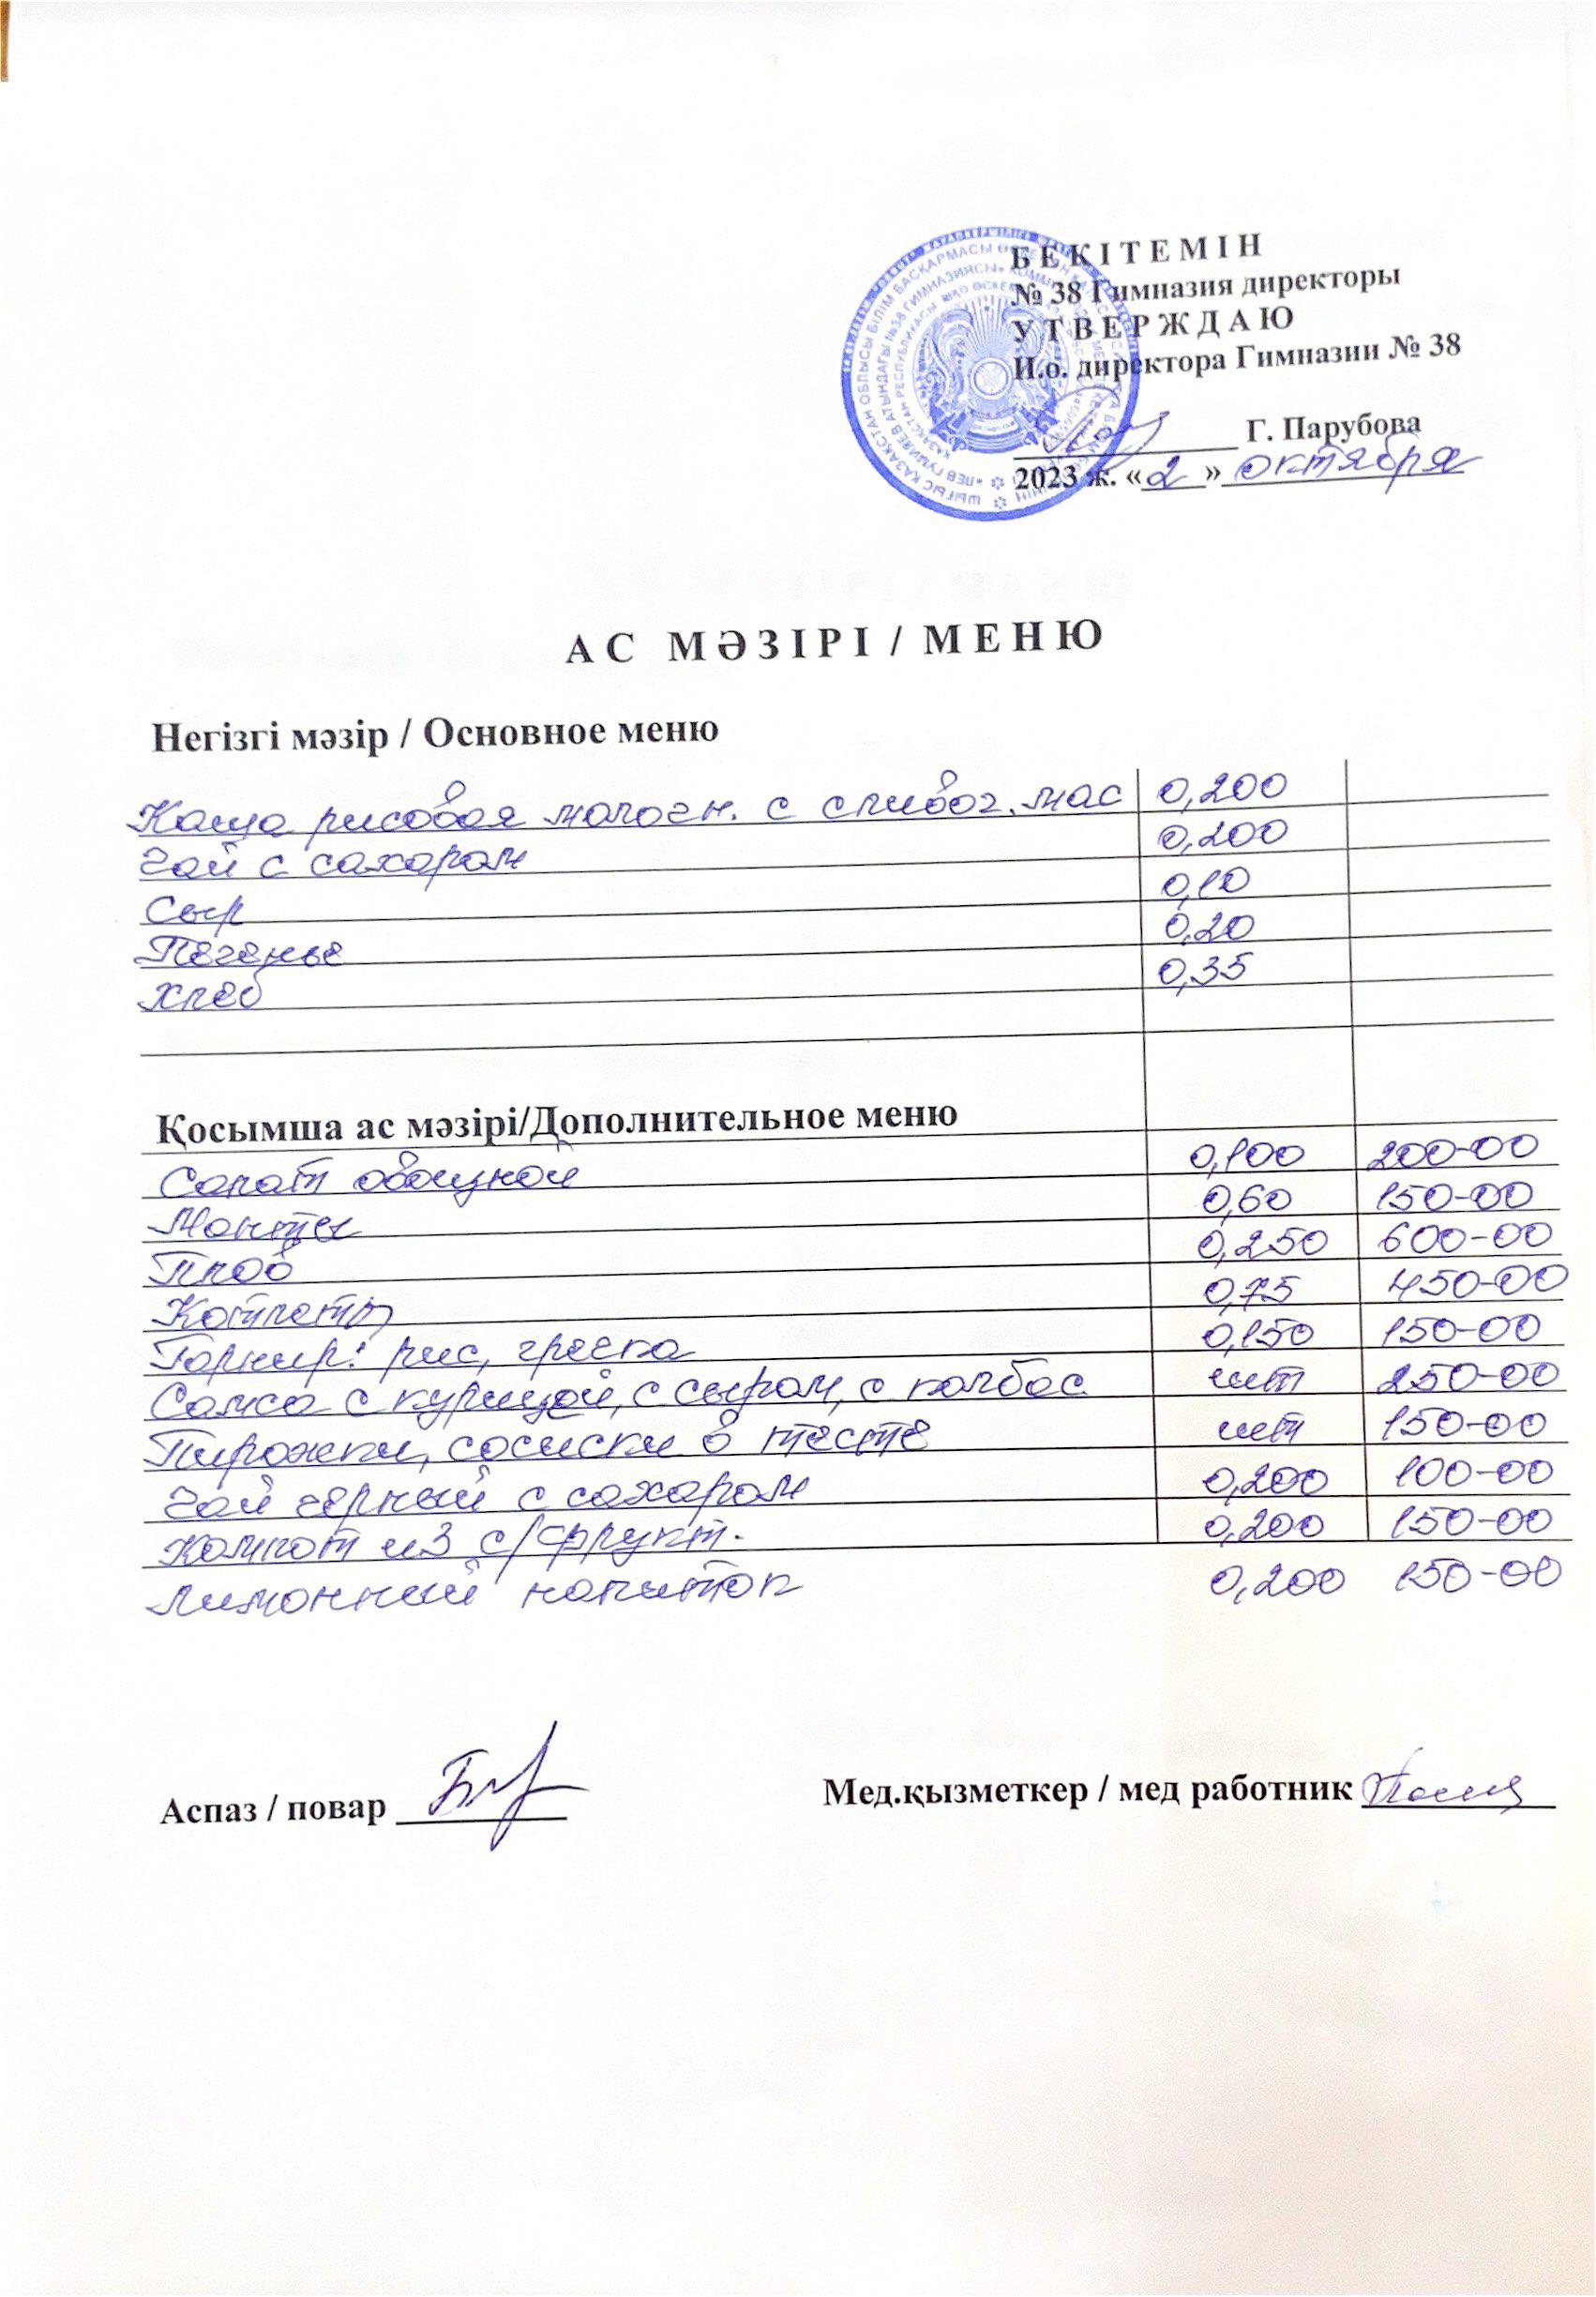 БЕКІТЕМІН
№ 38 Гимназия директоры
УТВЕРЖДАЮ
И.о. директора Гимназии № 38
Г. Парубова
2023 ж. «2» октября
АС МӘЗІРІ / МЕНЮ
Негізгі мәзір / Основное меню
Каша рисовая молочн. с сливоч. мас 0,200
Чай с сахаром 0,200
Сыр 0,10
Печенье 0,20
Хлеб 0,35
Қосымша ас мәзірі/Дополнительное меню
Салат овощной 0,100 200-00
Манты 0,60 150-00
Плов 0,250 600-00
Котлеты 0,75 450-00
Гарнир: рис, гречка 0,150 150-00
Самса с курицей, с сыром, с колбас. шт 250-00
Пирожки, сосиски в тесте шт 150-00
Чай чёрный с сахаром 0,200 100-00
Компот из с/фрукт. 0,200 150-00
Лимонный напиток 0,200 150-00
Аспаз / повар
Мед.қызметкер / мед работник